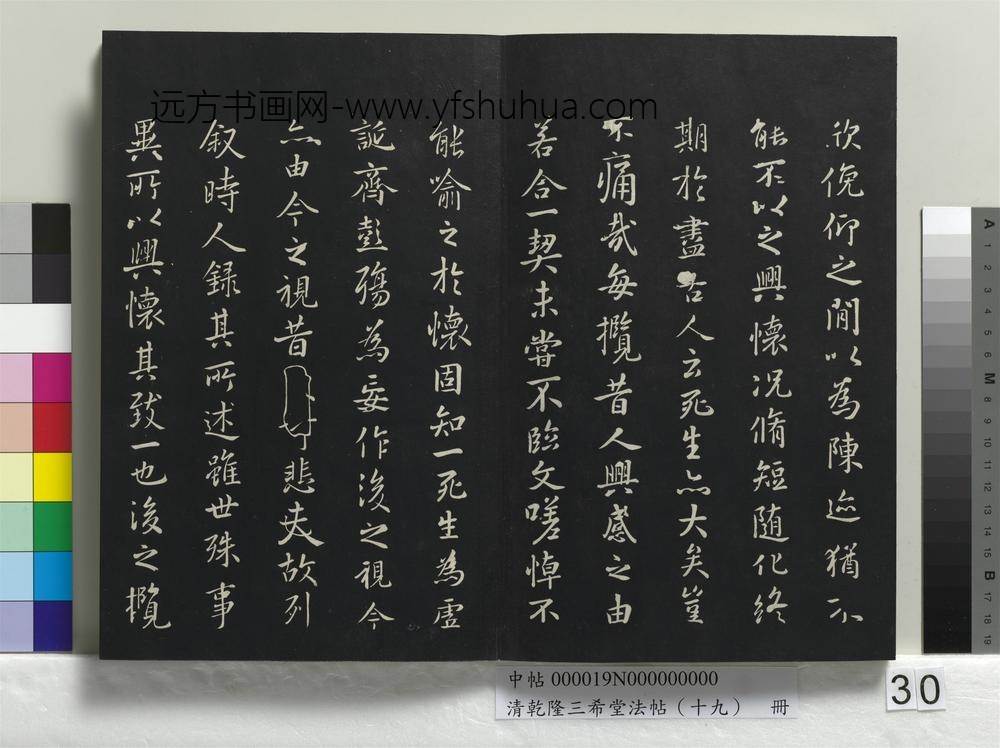 远方书画网-www.yfshuhua.com
欣俛仰之閒以為陳迹猶不
能不以之興懷况脩短随化終
期於盡古人云死生亦大矣豈
不痛哉每攬昔人興感之由
若合一契未嘗不臨文嗟悼不
能喻之於懷固知一死生為虛
誕齊彭殤為妄作後之視今
亦由今之視昔悲夫故列
叙時人録其所述雖世殊事
異所以興懷其致一也後之攬
中帖 000019N000000000
清乾隆三希堂法帖（十九） 冊
30
A 1 2 3 4 5 6 M 8 9 10 11 12 13 14 15 B 17 18 19